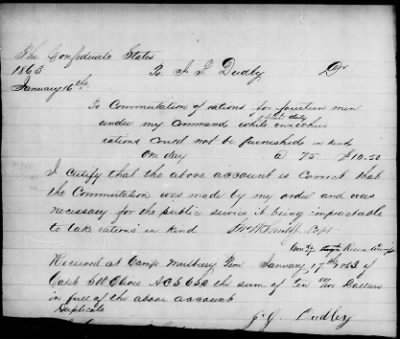 The Confederate States
1863 To J. G. Dudley Dr
January 16th
To Commutation of rations for fourteen men
under my command while on duty where
rations could not be furnished in kind
One day @ 75 $10.50
I certify that the above account is correct that
the Commutation was made by my order and was
necessary for the public service it being impracticable
to take rations in kind Capt
Received at Camp Tenn January 17th 1863 of
Capt A C S C S A the sum of Ten 50/100 Dollars
in full of the above account
Duplicate J. G. Dudley